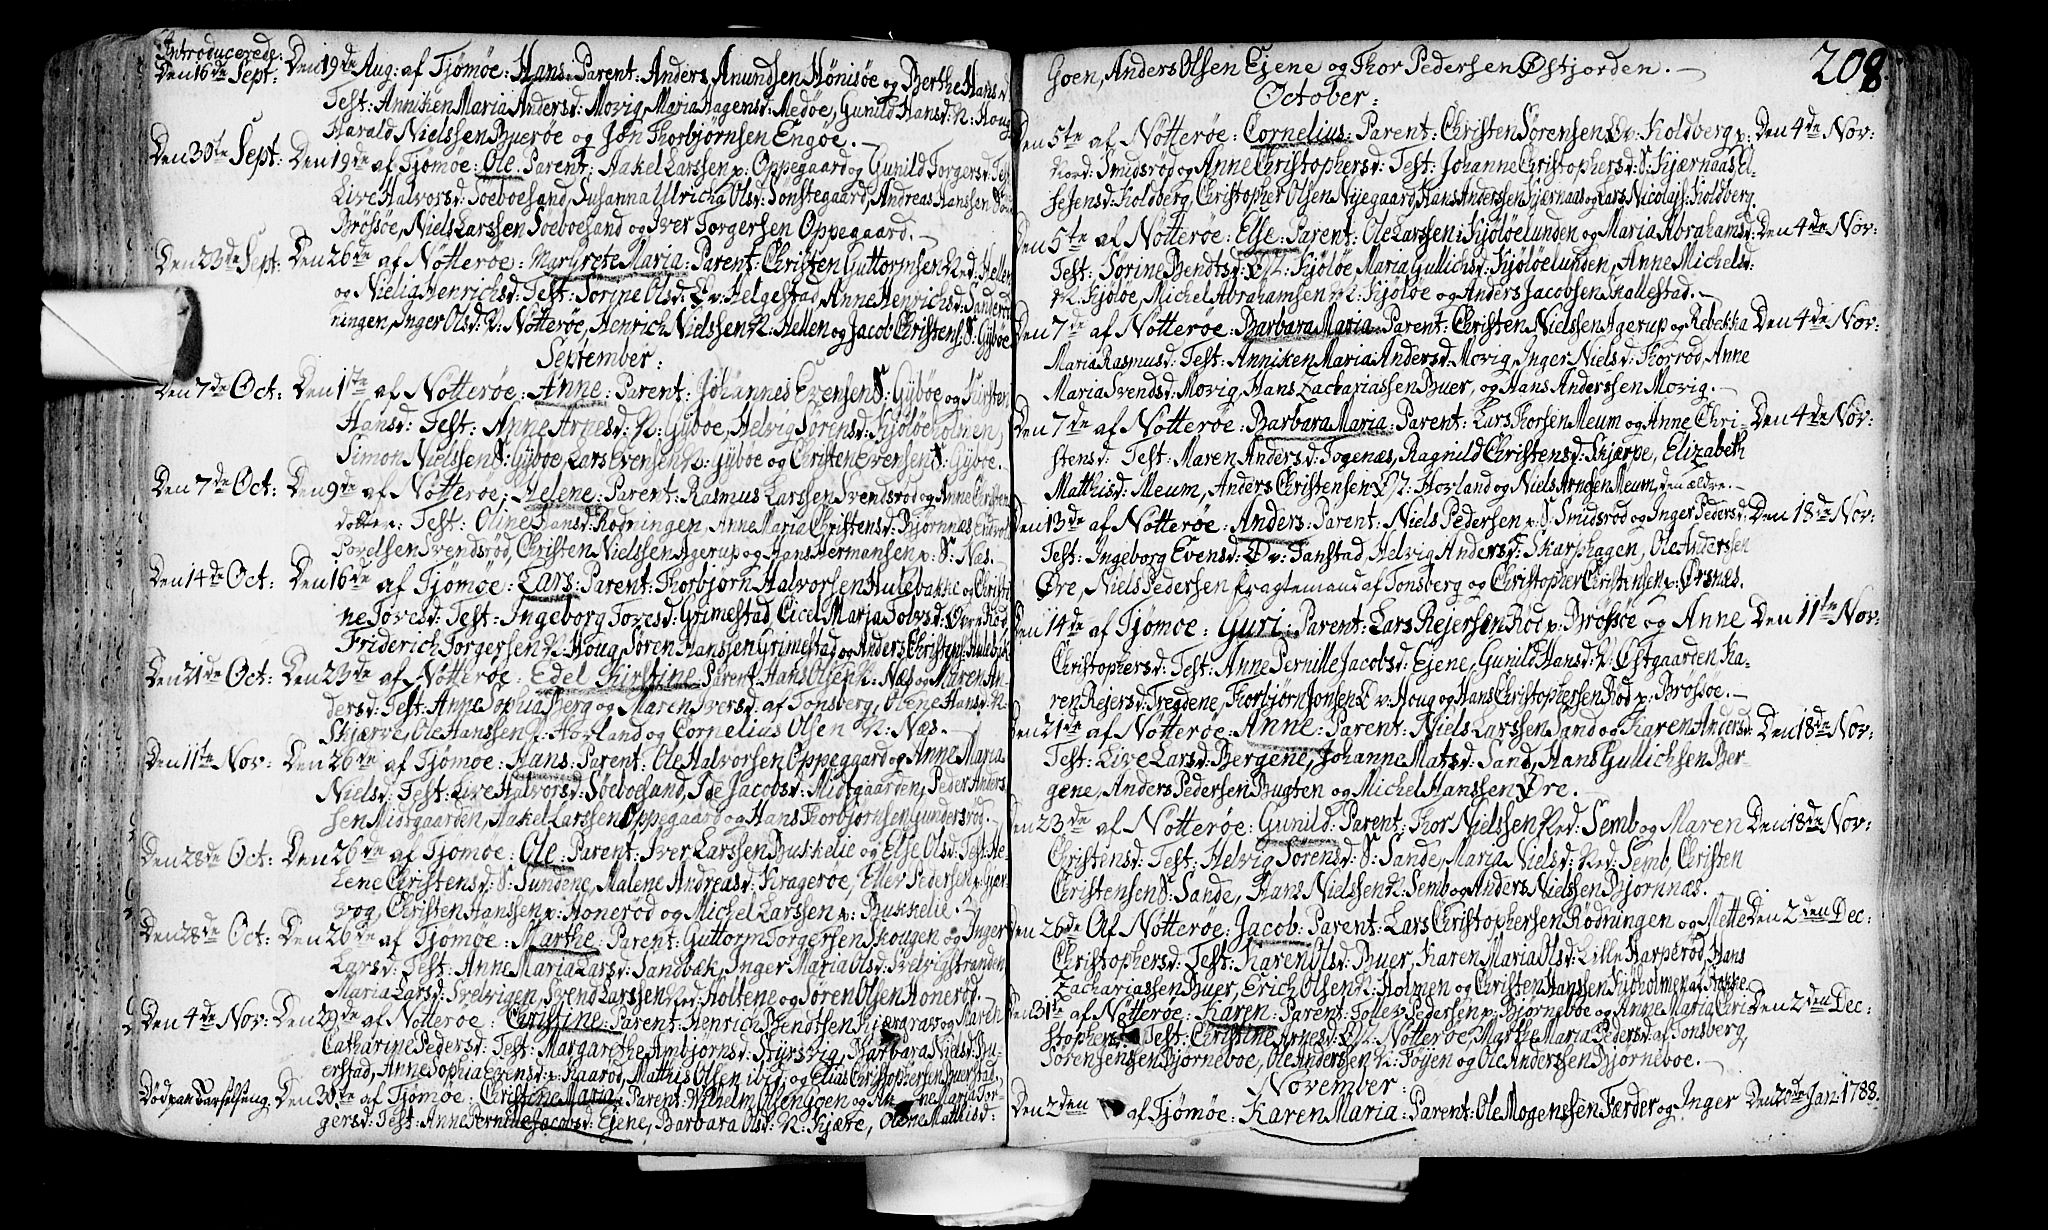 Introducerede:
Den 16de Sept: Den 19de Aug: af Tjømøe: Hans: Parent: Anders Anundsen Hönisøe og Berthe Hansd
Test: Anniken Maria Andersd: Movig, Maria Hagensd: Medøe, Gunild Hansd: N: Houg
Harald Nielssen Buerøe og Jon Thorbjørnsen Engøe.
Den 30te Sept: Den 19de af Tjømøe: Ole. Parent: Aakel Larssen p: Oppegaard og Gunild Torgersd: Test:
Live Halvorsd: Søeboesand, Susanna Ulricha Olsd: Sønstegaard, Andreas Hanssen
Brøssøe, Niels Larssen Søeboesand og Iver Torgersen Oppegaard.
Den 23de Sept: Den 26de af Nøtterøe: Margrete Maria: Parent: Christen Guttormsen Ned: Hellen
og Nielig Henrichsd: Test: Sørine Olsd: Øv: Helgestad, Anne Henrichsd: Sanderød
ningen, Inger Olsd: N: Nøtterøe, Henrich Nielssen N: Hellen og Jacob Christens: S: Gybøe
September:
Den 7de Oct: Den 1ste af Nøtterøe: Anne: Parent: Johannes Evensen S: Gybøe og Kirsten
Hansd: Test: Anne Arnesd: N: Gybøe, Helvig Sörensd: Kjøløeholmen,
Simon Nielssen S: Gybøe Lars Evensen N: Gybøe og Christen Evensen S: Gybøe.
Den 7de Oct: Den 9de af Nøtterøe: Helene: Parent: Rasmus Larssen Svendsrød og Anne Christen
datter: Test: Oline Hansd: Rødningen, Anne Maria Christensd: Bjørnnæs
Povelsen Svendsrød, Christen Nielssen Agerup og Hans Hermansen p: S: Næs.
Den 14de Oct: Den 16de af Tjømøe: Lars: Parent: Thorbjørn Halvorsen Hulebakke og Christi
ne Toresd: Test: Ingeborg Toresd: Grimestad, Cicel Maria Jobsd: Øvre Rød
Friderich Torgersen N: Houg, Søren Hanssen Grimestad og Anders Christens: Hulebak
Den 21de Oct: Den 23de af Nøtterøe: Edel Kirstine Parent: Hans Olsen N: Næs og Maren An-
dersd: Test: Anne Sophia Berg og Maren Iversd: af Tonsberg, Olene Hansd: N:
Skjerve, Ole Hanssen p: Horland og Cornelius Olsen N: Næs.
Den 11te Nov: Den 26de af Tjømøe: Hans: Parent: Ole Halvorsen Oppegaard og Anne Maria
Nielsd: Test: Live Halvorsd: Søeboesand, Ide Jacobsd: Midtgaarden, Peder Anders
sen Midtgaarden, Aakel Larssen Oppegaard og Hans Thorbjørnsen Gundersrød.
Den 28de Oct: Den 26de af Tjømøe: Ole. Parent: Iver Larssen Bukkelie og Else Olsd: Test: He-
lene Christensd: S: Sundene, Malene Andreasd: Kragerøe, Eller Pedersen p: Gjær
vog, Christen Hanssen p: Honerød og Michel Larssen p: Bukkelie.
Den 28de Oct: Den 26de af Tjømøe: Marthe: Parent: Guttorm Torgersen Skougen og Inger
Larsd: Test: Anne Maria Larsd: Sandbæk, Inger Maria Olsd: Svelvigstranden
Maria Larsd: Svelvigen, Svend Larssen Ned: Holtene og Søren Olsen Honerød.
Den 4de Nov: Den 29de af Nøtterøe: Christine: Parent: Henrich Bendtsen Kjærgrav og Maren
Catharine Pedersd: Test: Margarethe Ambjørnsd: Byrsvig, Barbara Nielsd: Bu-
erstad, Anne Sophia Evensd: p: Kaarød, Matthis Olsen ibid: og Elias Christophersen Buerstad.
Død paa Barselseng. Den 30te af Tjømøe: Christine Maria: Parent: Wilhelm Olsen Goen og Anne Maria Tor-
gersd: Test: Anne Pernille Jacobsd: Ejene, Barbara Olsd: N: Kjære, Olene Mathisd:
208.
Goen, Anders Olsen Ejene og Thor Pedersen Østjorden.
October:
Den 5te af Nøtterøe: Cornelius: Parent: Christen Sørensen Øv: Koldberg p: Den 4de Nov:
Nord: Smidsrød og Anne Christophersd: Test: Johanne Christophersd: S: Kjærnaas, El-
sesensd: Koldberg, Christopher Olsen Nyegaard, Hans Anderssen Kjærnaas og Lars Nicolajs: Koldberg.
Den 5te af Nøtterøe: Else: Parent: Ole Larssen i Kjøløelunden og Maria Abrahamsd: Den 4de Nov:
Test: Sørine Bendtsd: Ø: N: Kjøløe, Maria Gullichsd: Kjøløelunden, Anne Michelsd:
N: Kjøløe, Michel Abrahamsen N: Kjøløe og Anders Jacobsen Skallestad.
Den 7de af Nøtterøe: Barbara Maria: Parent: Christen Nielssen Agerup og Rebekka Den 4de Nov:
Maria Rasmusd: Test: Anniken Maria Andersd: Movig, Inger Nielsd: Thorrød, Anne
Maria Svendsd: Movig, Hans Zachariassen Buer, og Hans Anderssen Movig.
Den 7de af Nøtterøe: Barbara Maria: Parent: Lars Thorsen Meum og Anne Chri- Den 4de Nov:
stensd: Test: Maren Andersd: Togenæs, Ragnild Christensd: Skjerve, Elizabeth
Matthisd: Meum, Anders Christensen Ø: N: Horland og Niels Arnesen Meum, den ældre.
Den 13de af Nøtterøe: Anders: Parent: Niels Pedersen p: S: Smidsrød og Inger Pedersd: Den 18de Nov:
Test: Ingeborg Evensd: Øv: Tanstad, Helvig Andersd: Skarphagen, Ole Andersen
Øre, Niels Pedersen Fragtemand af Tonsberg og Christopher Christensen p: Ørsnes.
Den 14de af Tjømøe: Guri: Parent: Lars Rejersen Rød p: Brøssøe og Anne Den 11te Nov:
Christophersd: Test: Anne Pernille Jacobsd: Ejene, Gunild Hansd: N: Østgaarden, Ka-
ren Rejersd: Tregdene, Thorbjørn Jonsen Øv: Houg og Hans Christophersen Rød p: Brøssøe.
Den 21de af Nøtterøe: Anne: Parent: Niels Larssen Sand og Karen Andersd: Den 18de Nov:
Test: Live Larsd: Bergene, Johanne Matsd: Sand, Hans Gullichsen Ber-
gene, Anders Pedersen Bugten og Michel Hanssen Øre.
Den 23de af Nøtterøe: Gunild: Parent: Thor Nielssen Ned: Semb og Maren Den 18de Nov:
Christensd: Test: Helvig Sørensd: S: Sande, Maria Nielsd: Ned: Semb, Christen
Christensen S: Sande, Hans Nielssen N: Semb og Anders Nielssen Bjørnnæs.
Den 26de Af Nøtterøe: Jacob: Parent: Lars Christophersen Rødningen og Mette Den 2den Dec:
Christophersd: Test: Karen Olsd: Buer, Karen Maria Olsd: Lille Harperød, Hans
Zachariassen Buer, Erich Olsen N: Holmen og Christen Hanssen Kjøholmen af Stokke.
Den 31te af Nøtterøe: Karen: Parent: Tollev Pedersen p: Bjørneboe og Anne Maria Cri Den 2den Dec:
stophersd: Test: Christine Arnesd: Ø: N: Nøtterøe, Marthe Maria Pedersd: af Tonsberg,
Sørensen Bjørneboe, Ole Anderssen N: Foyen og Ole Anderssen Bjørneboe.
November:
Den 2den af Tjømøe: Karen Maria: Parent: Ole Mogenssen Færder og Inger Den 20de Jan: 1788.